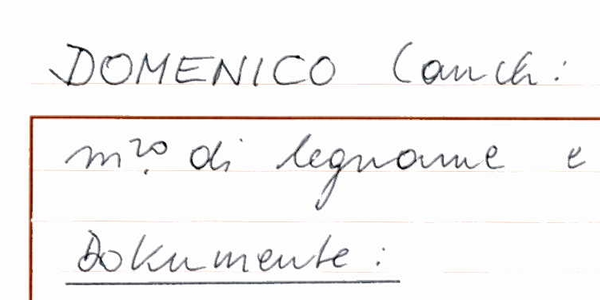 DOMENICO (auch:
m.ro di legname e
Dokumente: